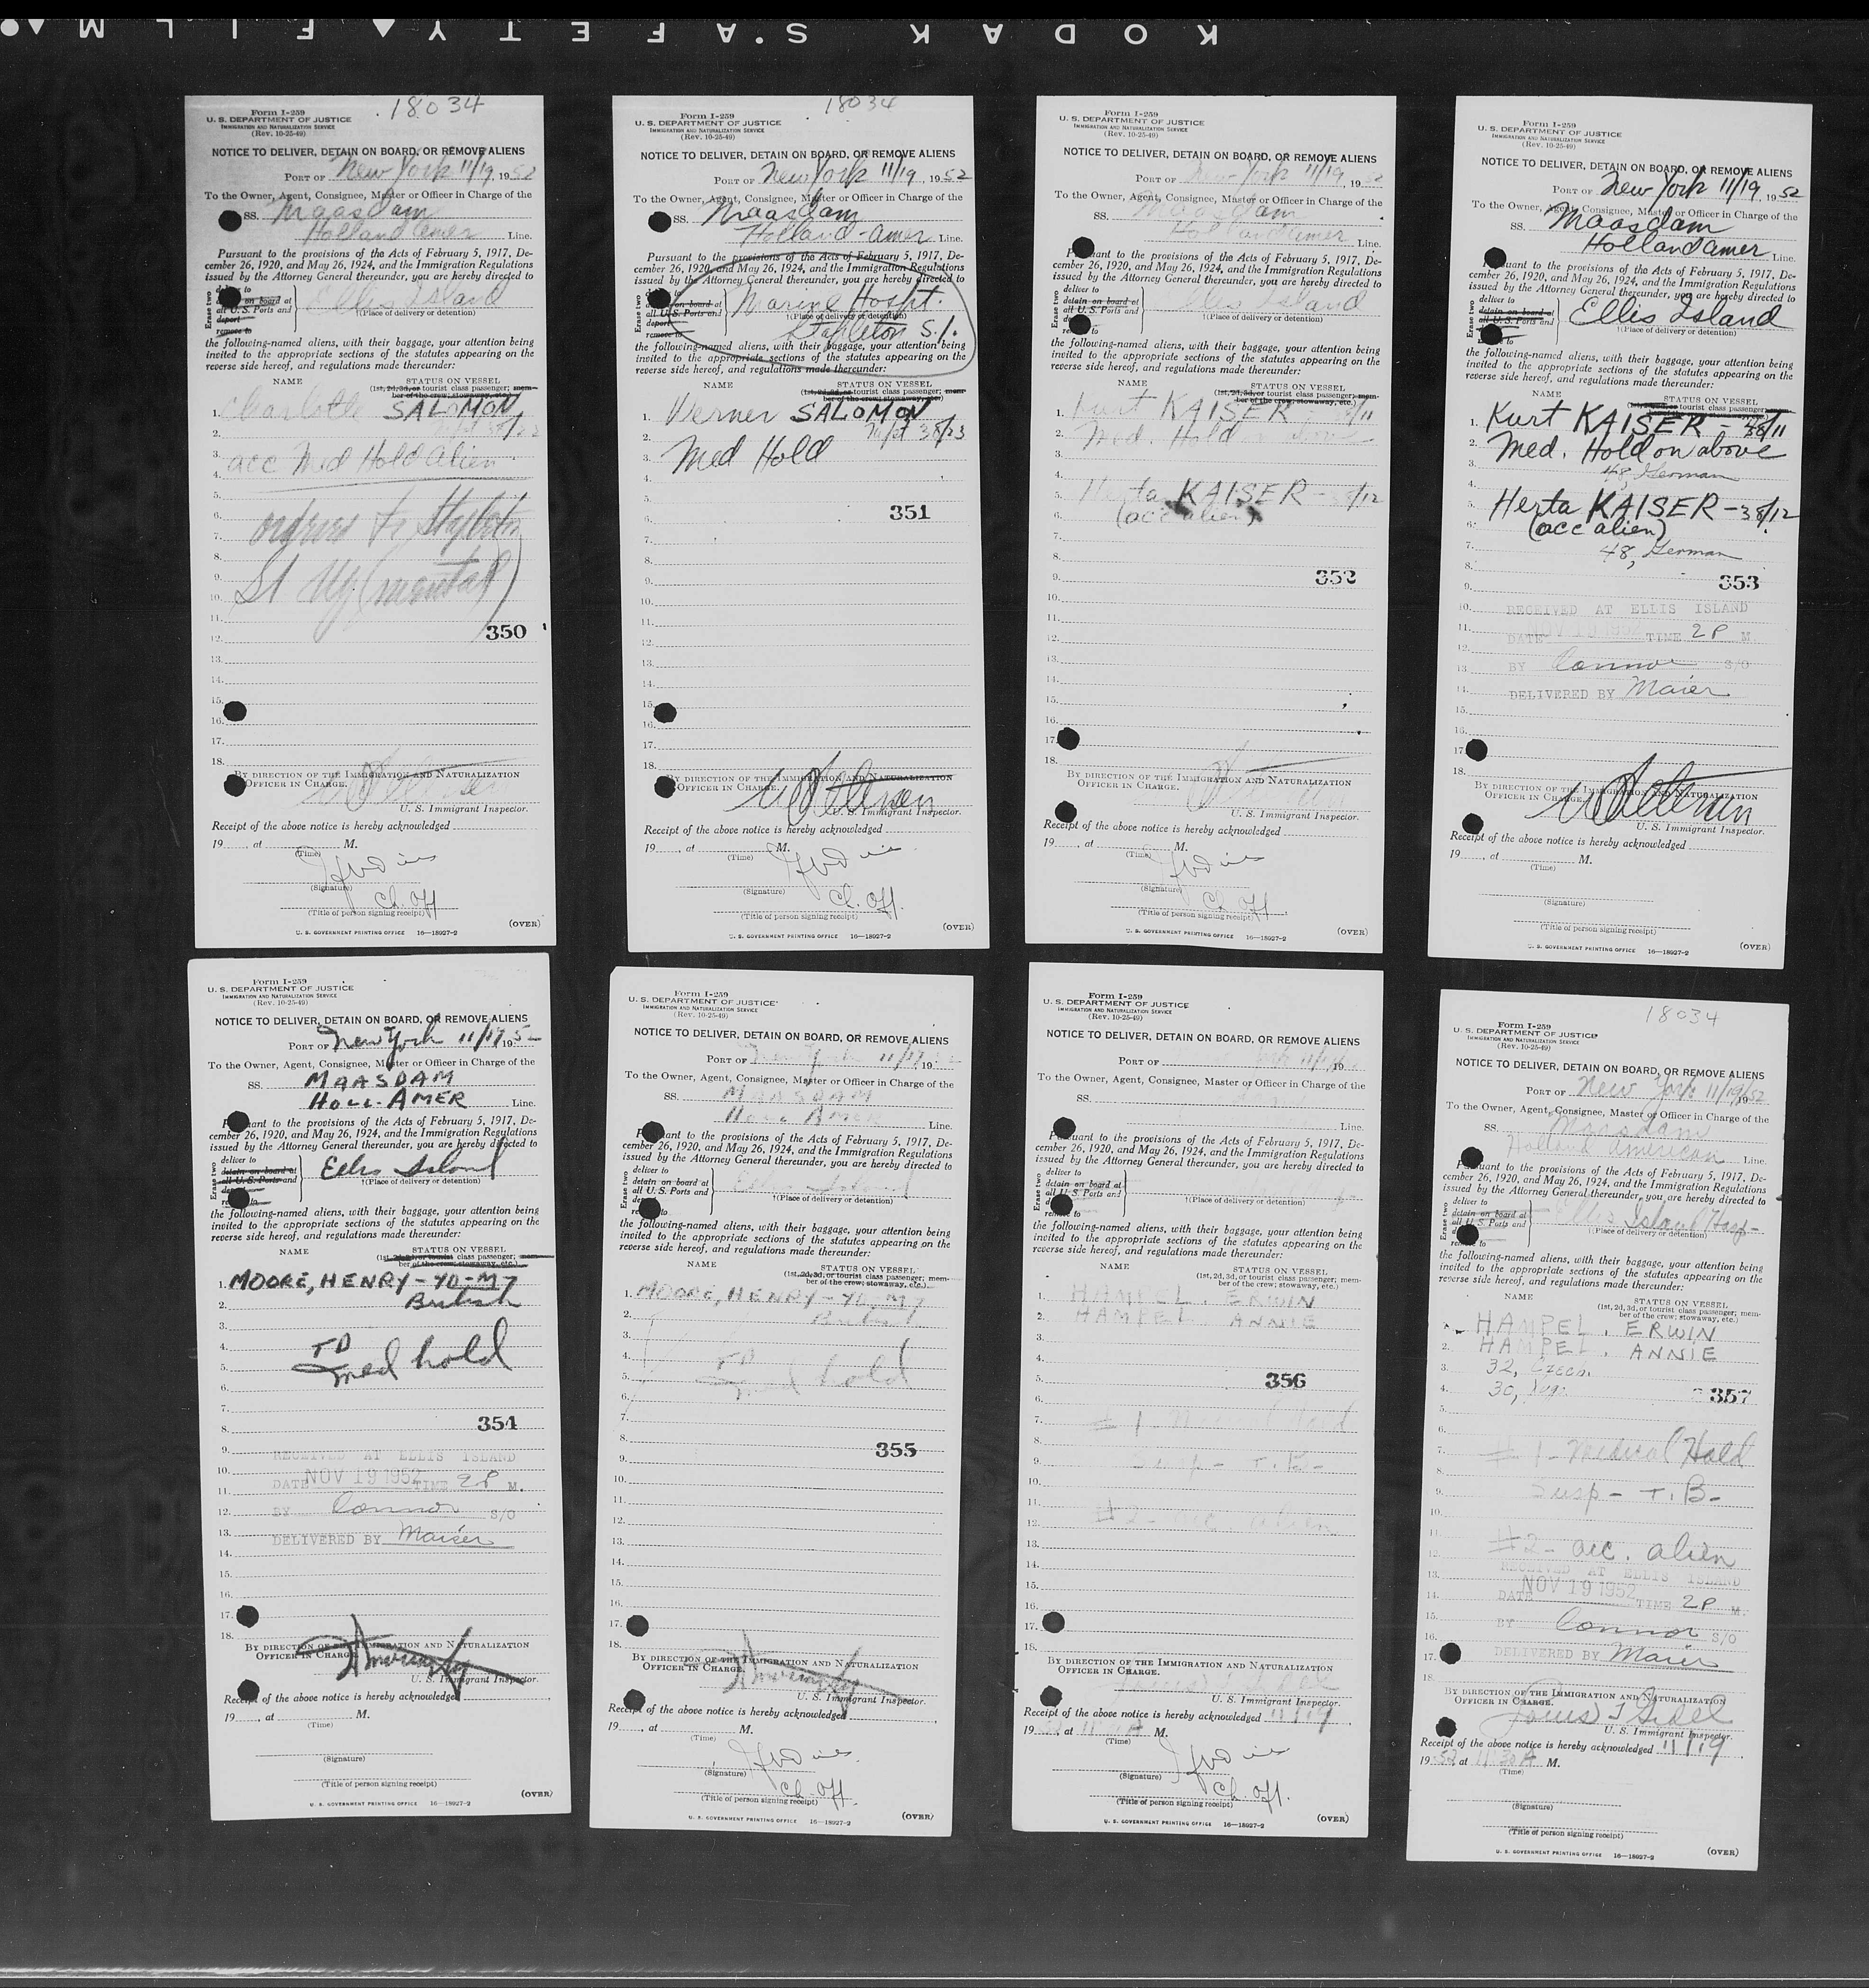 KODAK SAFETY FILM
18034
Form I-259
U. S. DEPARTMENT OF JUSTICE
IMMIGRATION AND NATURALIZATION SERVICE
(Rev. 10-25-49)
NOTICE TO DELIVER, DETAIN ON BOARD, OR REMOVE ALIENS
PORT OF New York 11/19, 1952
To the Owner, Agent, Consignee, Master or Officer in Charge of the
SS. Maasdam
Holland Amer Line.
Pursuant to the provisions of the Acts of February 5, 1917, De-
cember 26, 1920, and May 26, 1924, and the Immigration Regulations
issued by the Attorney General thereunder, you are hereby directed to
Erase two
deliver to
detain on board at
all U. S. Ports and
deport
remove to
Ellis Island
(Place of delivery or detention)
the following-named aliens, with their baggage, your attention being
invited to the appropriate sections of the statutes appearing on the
reverse side hereof, and regulations made thereunder:
NAME STATUS ON VESSEL
(1st, 2d, 3d, or tourist class passenger; mem-
ber of the crew; stowaway, etc.)
1. Charlotte SALOMON
2.
3. acc Med Hold Alien
4.
5.
6.
7.
8.
9. (mental)
10.
11.
12. 350
13.
14.
15.
16.
17.
18.
BY DIRECTION OF THE IMMIGRATION AND NATURALIZATION
OFFICER IN CHARGE.
U. S. Immigrant Inspector.
Receipt of the above notice is hereby acknowledged
19 , at M.
(Time)
(Signature)
Ch. Off
(Title of person signing receipt)
(OVER)
U. S. GOVERNMENT PRINTING OFFICE 16—18927-2
18034
Form I-259
U. S. DEPARTMENT OF JUSTICE
IMMIGRATION AND NATURALIZATION SERVICE
(Rev. 10-25-49)
NOTICE TO DELIVER, DETAIN ON BOARD, OR REMOVE ALIENS
PORT OF New York 11/19, 1952
To the Owner, Agent, Consignee, Master or Officer in Charge of the
SS. Maasdam
Holland-Amer Line.
Pursuant to the provisions of the Acts of February 5, 1917, De-
cember 26, 1920, and May 26, 1924, and the Immigration Regulations
issued by the Attorney General thereunder, you are hereby directed to
Erase two
on board at
all U. S. Ports and
deport
remove to
Marine Hospt.
(Place of delivery or detention)
Stapleton S.I.
the following-named aliens, with their baggage, your attention being
invited to the appropriate sections of the statutes appearing on the
reverse side hereof, and regulations made thereunder:
NAME STATUS ON VESSEL
(1st, 2d, 3d, or tourist class passenger; mem-
ber of the crew; stowaway, etc.)
1. Verner SALOMON
2. 38/23
3. Med Hold
4.
5.
6. 351
7.
8.
9.
10.
11.
12.
13.
14.
15.
16.
17.
18.
BY DIRECTION OF THE IMMIGRATION AND NATURALIZATION
OFFICER IN CHARGE.
U. S. Immigrant Inspector.
Receipt of the above notice is hereby acknowledged
19 , at M.
(Time)
(Signature)
Ch. Off.
(Title of person signing receipt)
(OVER)
U. S. GOVERNMENT PRINTING OFFICE 16—18927-2
Form I-259
U. S. DEPARTMENT OF JUSTICE
IMMIGRATION AND NATURALIZATION SERVICE
(Rev. 10-25-49)
NOTICE TO DELIVER, DETAIN ON BOARD, OR REMOVE ALIENS
PORT OF New York 11/19, 1952
To the Owner, Agent, Consignee, Master or Officer in Charge of the
SS. Maasdam
Holland Amer Line.
Pursuant to the provisions of the Acts of February 5, 1917, De-
cember 26, 1920, and May 26, 1924, and the Immigration Regulations
issued by the Attorney General thereunder, you are hereby directed to
Erase two
deliver to
detain on board at
all U. S. Ports and
to
Ellis Island
(Place of delivery or detention)
the following-named aliens, with their baggage, your attention being
invited to the appropriate sections of the statutes appearing on the
reverse side hereof, and regulations made thereunder:
NAME STATUS ON VESSEL
(1st, 2d, 3d, or tourist class passenger; mem-
ber of the crew; stowaway, etc.)
1. Kurt KAISER 38/11
2. Med. Hold on above
3.
4.
5. Herta KAISER - 38/12
6. (acc alien)
7.
8.
9. 352
10.
11.
12.
13.
14.
15.
16.
17.
18.
BY DIRECTION OF THE IMMIGRATION AND NATURALIZATION
OFFICER IN CHARGE.
U. S. Immigrant Inspector.
Receipt of the above notice is hereby acknowledged
19 , at M.
(Time)
(Signature)
Ch. Off.
(Title of person signing receipt)
(OVER)
U. S. GOVERNMENT PRINTING OFFICE 16—18927-2
Form I-259
U. S. DEPARTMENT OF JUSTICE
IMMIGRATION AND NATURALIZATION SERVICE
(Rev. 10-25-49)
NOTICE TO DELIVER, DETAIN ON BOARD, OR REMOVE ALIENS
PORT OF New York 11/19, 1952
To the Owner, Agent, Consignee, Master or Officer in Charge of the
SS. Maasdam
Holland Amer Line.
Pursuant to the provisions of the Acts of February 5, 1917, De-
cember 26, 1920, and May 26, 1924, and the Immigration Regulations
issued by the Attorney General thereunder, you are hereby directed to
Erase two
deliver to
detain on board at
all U. S. Ports and
to
Ellis Island
(Place of delivery or detention)
the following-named aliens, with their baggage, your attention being
invited to the appropriate sections of the statutes appearing on the
reverse side hereof, and regulations made thereunder:
NAME STATUS ON VESSEL
1. Kurt KAISER - 38/11
2. Med. Hold on above
3. 48, German
4.
5. Herta KAISER - 38/12
6. (acc alien)
7. 48, German
8.
9. 353
10. RECEIVED AT ELLIS ISLAND
11. DATE NOV 19 1952 TIME 2 P M.
12.
13. BY Connor S/O
14. DELIVERED BY Maier
15.
16.
17.
18.
BY DIRECTION OF THE IMMIGRATION AND NATURALIZATION
OFFICER IN CHARGE.
U. S. Immigrant Inspector.
Receipt of the above notice is hereby acknowledged
19 , at M.
(Time)
(Signature)
(Title of person signing receipt)
(OVER)
U. S. GOVERNMENT PRINTING OFFICE 16—18927-2
Form I-259
U. S. DEPARTMENT OF JUSTICE
IMMIGRATION AND NATURALIZATION SERVICE
(Rev. 10-25-49)
NOTICE TO DELIVER, DETAIN ON BOARD, OR REMOVE ALIENS
PORT OF New York 11/19 1952
To the Owner, Agent, Consignee, Master or Officer in Charge of the
SS. MAASDAM
HOLL-AMER Line.
Pursuant to the provisions of the Acts of February 5, 1917, De-
cember 26, 1920, and May 26, 1924, and the Immigration Regulations
issued by the Attorney General thereunder, you are hereby directed to
Erase two
deliver to
detain on board at
all U. S. Ports and
deport
Ellis Island
(Place of delivery or detention)
the following-named aliens, with their baggage, your attention being
invited to the appropriate sections of the statutes appearing on the
reverse side hereof, and regulations made thereunder:
NAME STATUS ON VESSEL
(1st, 2d, 3d, or tourist class passenger; mem-
ber of the crew; stowaway, etc.)
1. MOORE, HENRY - 40 - M7
2. British
3.
4. TD
5. med hold
6.
7.
8. 354
9. RECEIVED AT ELLIS ISLAND
10. DATE NOV 19 1952 TIME 2 P M.
11.
12. BY Connor S/O
13. DELIVERED BY Maier
14.
15.
16.
17.
18.
BY DIRECTION OF THE IMMIGRATION AND NATURALIZATION
OFFICER IN CHARGE.
U. S. Immigrant Inspector.
Receipt of the above notice is hereby acknowledged
19 , at M.
(Time)
(Signature)
(Title of person signing receipt)
(OVER)
U. S. GOVERNMENT PRINTING OFFICE 16—18927-2
Form I-259
U. S. DEPARTMENT OF JUSTICE
IMMIGRATION AND NATURALIZATION SERVICE
(Rev. 10-25-49)
NOTICE TO DELIVER, DETAIN ON BOARD, OR REMOVE ALIENS
PORT OF New York 11/19, 19
To the Owner, Agent, Consignee, Master or Officer in Charge of the
SS. MAASDAM
HOLL AMER Line.
Pursuant to the provisions of the Acts of February 5, 1917, De-
cember 26, 1920, and May 26, 1924, and the Immigration Regulations
issued by the Attorney General thereunder, you are hereby directed to
Erase two
deliver to
detain on board at
all U. S. Ports and
to
Ellis Island
(Place of delivery or detention)
the following-named aliens, with their baggage, your attention being
invited to the appropriate sections of the statutes appearing on the
reverse side hereof, and regulations made thereunder:
NAME STATUS ON VESSEL
(1st, 2d, 3d, or tourist class passenger; mem-
ber of the crew; stowaway, etc.)
1. MOORE, HENRY - 40 - M7
2. British
3.
4. TD
5. med hold
6.
7.
8. 355
9.
10.
11.
12.
13.
14.
15.
16.
17.
18.
BY DIRECTION OF THE IMMIGRATION AND NATURALIZATION
OFFICER IN CHARGE.
U. S. Immigrant Inspector.
Receipt of the above notice is hereby acknowledged
19 , at M.
(Time)
(Signature)
Ch. Off.
(Title of person signing receipt)
(OVER)
U. S. GOVERNMENT PRINTING OFFICE 16—18927-2
Form I-259
U. S. DEPARTMENT OF JUSTICE
IMMIGRATION AND NATURALIZATION SERVICE
(Rev. 10-25-49)
NOTICE TO DELIVER, DETAIN ON BOARD, OR REMOVE ALIENS
PORT OF York 11/19 19
To the Owner, Agent, Consignee, Master or Officer in Charge of the
SS.
Line.
Pursuant to the provisions of the Acts of February 5, 1917, De-
cember 26, 1920, and May 26, 1924, and the Immigration Regulations
issued by the Attorney General thereunder, you are hereby directed to
Erase two
deliver to
detain on board at
all U. S. Ports and
remove to
(Place of delivery or detention)
the following-named aliens, with their baggage, your attention being
invited to the appropriate sections of the statutes appearing on the
reverse side hereof, and regulations made thereunder:
NAME STATUS ON VESSEL
(1st, 2d, 3d, or tourist class passenger; mem-
ber of the crew; stowaway, etc.)
1. HAMPEL, ERWIN
2. HAMPEL, ANNIE
3.
4.
5. 356
6.
7. # 1 - Medical Hold
8.
9. Susp - T.B-
10.
11.
12. #2 - acc. alien
13.
14.
15.
16.
17.
18.
BY DIRECTION OF THE IMMIGRATION AND NATURALIZATION
OFFICER IN CHARGE.
U. S. Immigrant Inspector.
Receipt of the above notice is hereby acknowledged 11/19
19 52 at 11:30 A M.
(Time)
(Signature)
Ch. Off.
(Title of person signing receipt)
(OVER)
U. S. GOVERNMENT PRINTING OFFICE 16—18927-2
18034
Form I-259
U. S. DEPARTMENT OF JUSTICE
IMMIGRATION AND NATURALIZATION SERVICE
(Rev. 10-25-49)
NOTICE TO DELIVER, DETAIN ON BOARD, OR REMOVE ALIENS
PORT OF New York 11/19/1952
To the Owner, Agent, Consignee, Master or Officer in Charge of the
SS. Maasdam
Holland American Line.
Pursuant to the provisions of the Acts of February 5, 1917, De-
cember 26, 1920, and May 26, 1924, and the Immigration Regulations
issued by the Attorney General thereunder, you are hereby directed to
Erase two
deliver to
detain on board at
all U. S. Ports and
to
Ellis Island Hosp-
(Place of delivery or detention)
the following-named aliens, with their baggage, your attention being
invited to the appropriate sections of the statutes appearing on the
reverse side hereof, and regulations made thereunder:
NAME STATUS ON VESSEL
(1st, 2d, 3d, or tourist class passenger; mem-
ber of the crew; stowaway, etc.)
1. HAMPEL, ERWIN
2. HAMPEL, ANNIE
3. 32, Czech.
4. 30, 357
5.
6.
7. # 1 - Medical Hold
8.
9. Susp - T.B-
10.
11. #2 - acc. alien
12. RECEIVED AT ELLIS ISLAND
13. NOV 19 1952
14. DATE TIME 2 P M.
15. BY Connor S/O
16.
17. DELIVERED BY Maier
18.
BY DIRECTION OF THE IMMIGRATION AND NATURALIZATION
OFFICER IN CHARGE.
U. S. Immigrant Inspector.
Receipt of the above notice is hereby acknowledged 11/19
19 52, at 11:30 A M.
(Time)
(Signature)
(Title of person signing receipt)
(OVER)
U. S. GOVERNMENT PRINTING OFFICE 16—18927-2